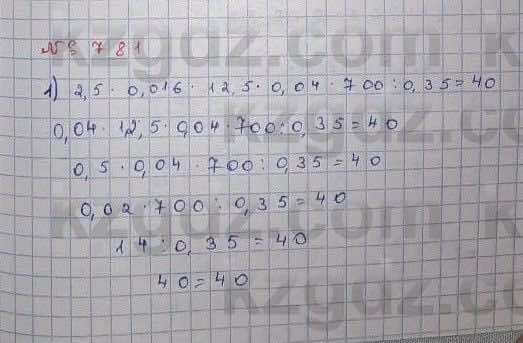 № 781
1) 2,5 · 0,016 · 12,5 · 0,04 · 700 : 0,35 = 40
0,04 · 12,5 · 0,04 · 700 : 0,35 = 40
0,5 · 0,04 · 700 : 0,35 = 40
0,02 · 700 : 0,35 = 40
14 : 0,35 = 40
40 = 40
kzgdz.com